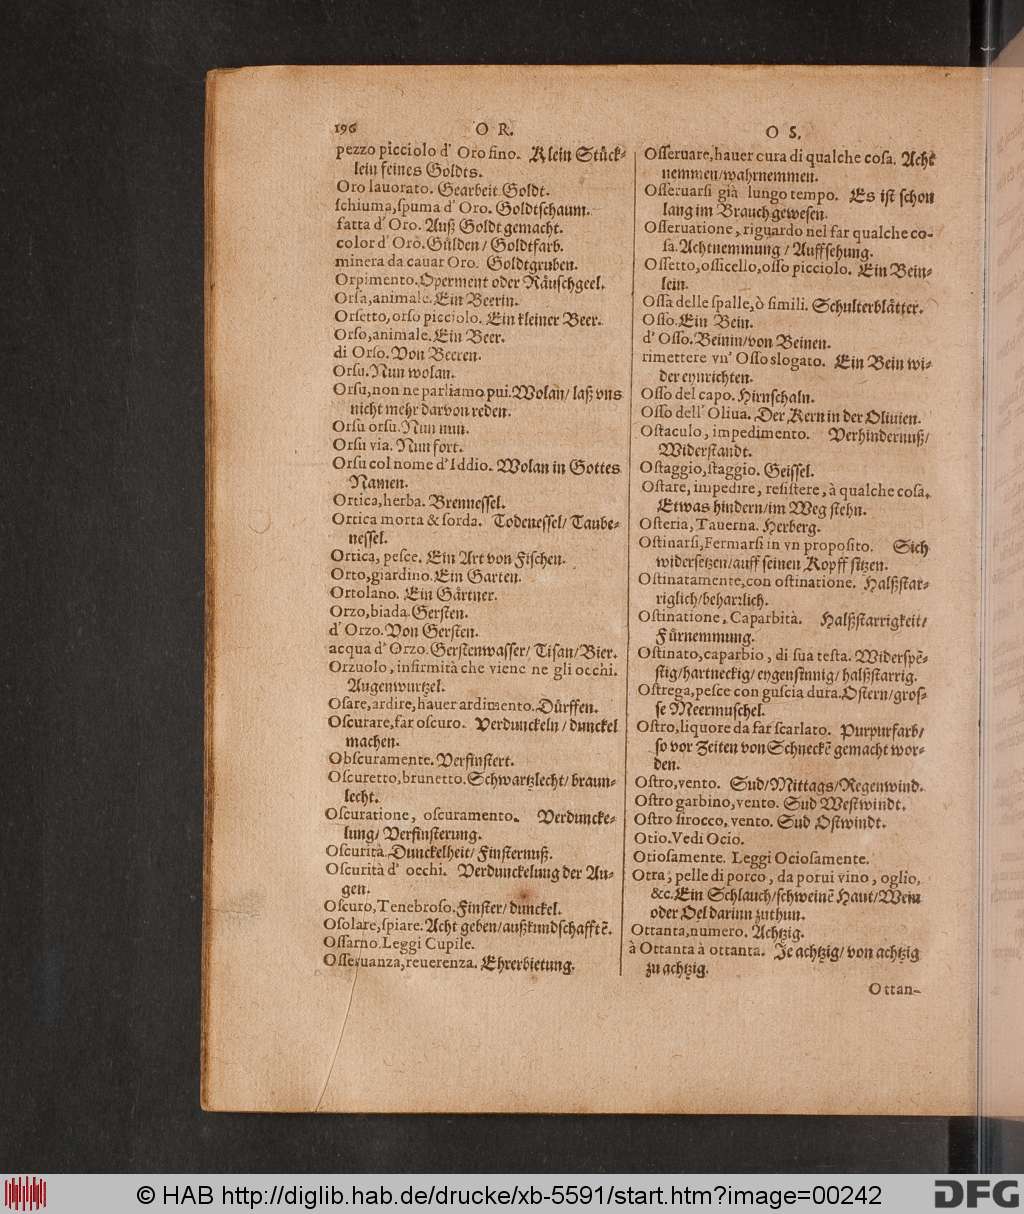 196
O R.
pezzo picciolo d' Oro fino. Klein Stück-
lein feines Goldts.
Oro lauorato. Gearbeit Goldt.
schiuma, spuma d' Oro. Goldtschaum.
fatta d' Oro. Auß Goldt gemacht.
color d' Oro. Gülden / Goldtfarb.
minera da cauar Oro. Goldtgruben.
Orpimento. Operment oder Räuschgeel.
Orsa, animale. Ein Beerin.
Orsetto, orso picciolo. Ein kleiner Beer.
Orso, animale. Ein Beer.
di Orso. Von Beeren.
Orsu. Nun wolan.
Orsu, non ne parliamo pui. Wolan / laß vns
nicht mehr darvon reden.
Orsu orsu. Nun nun.
Orsu via. Nun fort.
Orsu col nome d' Iddio. Wolan in Gottes
Namen.
Ortica, herba. Brennessel.
Ortica morta & sorda. Todenessel / Taube-
nessel.
Ortica, pesce. Ein Art von Fischen.
Orto, giardino. Ein Garten.
Ortolano. Ein Gärtner.
Orzo, biada. Gersten.
d' Orzo. Von Gersten.
acqua d' Orzo. Gerstenwasser / Tisan / Bier.
Orzuolo, infirmità che viene ne gli occhi.
Augenwurtzel.
Osare, ardire, hauer ardimento. Dürffen.
Oscurare, far oscuro. Verdunckeln / dunckel
machen.
Obscuramente. Verfinstert.
Oscuretto, brunetto. Schwartzlecht / braun-
lecht.
Oscuratione, oscuramento. Verduncke-
lung / Verfinsterung.
Oscurità. Dunckelheit / Finsternuß.
Oscurità d' occhi. Verdunckelung der Au-
gen.
Oscuro, Tenebroso. Finster / dunckel.
Osolare, spiare. Acht geben / außkundschafftẽ.
Ossarno. Leggi Cupile.
Osseruanza, reuerenza. Ehrerbietung.
O S.
Osseruare, hauer cura di qualche cosa. Acht
nemmen / wahrnemmen.
Osseruarsi già lungo tempo. Es ist schon
lang im Brauch gewesen.
Osseruatione, riguardo nel far qualche co-
sa. Achtnemmung / Auffsehung.
Ossetto, ossicello, osso picciolo. Ein Bein-
lein.
Ossa delle spalle, ò simili. Schulterblätter.
Osso. Ein Bein.
d' Osso. Beinin / von Beinen.
rimettere vn' Osso slogato. Ein Bein wi-
der eynrichten.
Osso del capo. Hirnschaln.
Osso dell' Oliua. Der Kern in der Olivien.
Ostaculo, impedimento. Verhindernuß /
Widerstandt.
Ostaggio, staggio. Geissel.
Ostare, impedire, resistere, à qualche cosa.
Etwas hindern / im Weg stehn.
Osteria, Tauerna. Herberg.
Ostinarsi, Fermarsi in vn proposito. Sich
widersetzen / auff seinen Kopff sitzen.
Ostinatamente, con ostinatione. Halßstar-
riglich / beharrlich.
Ostinatione, Caparbità. Halßstarrigkeit /
Fürnemmung.
Ostinato, caparbio, di sua testa. Widerspẽ-
stig / hartneckig / eygensinnig / halßstarrig.
Ostrega, pesce con guscia dura. Ostern / gros-
se Meermuschel.
Ostro, liquore da far scarlato. Purpurfarb /
so vor Zeiten von Schneckẽ gemacht wor-
den.
Ostro, vento. Sud / Mittags / Regenwind.
Ostro garbino, vento. Sud Westwindt.
Ostro sirocco, vento. Sud Ostwindt.
Otio. Vedi Ocio.
Otiosamente. Leggi Ociosamente.
Otra, pelle di porco, da porui vino, oglio,
&c. Ein Schlauch / schweinẽ Haut / Wein
oder Oel darinn zuthun.
Ottanta, numero. Achtzig.
à Ottanta à ottanta. Je achtzig / von achtzig
zu achtzig.
Ottan-
© HAB http://diglib.hab.de/drucke/xb-5591/start.htm?image=00242
DFG